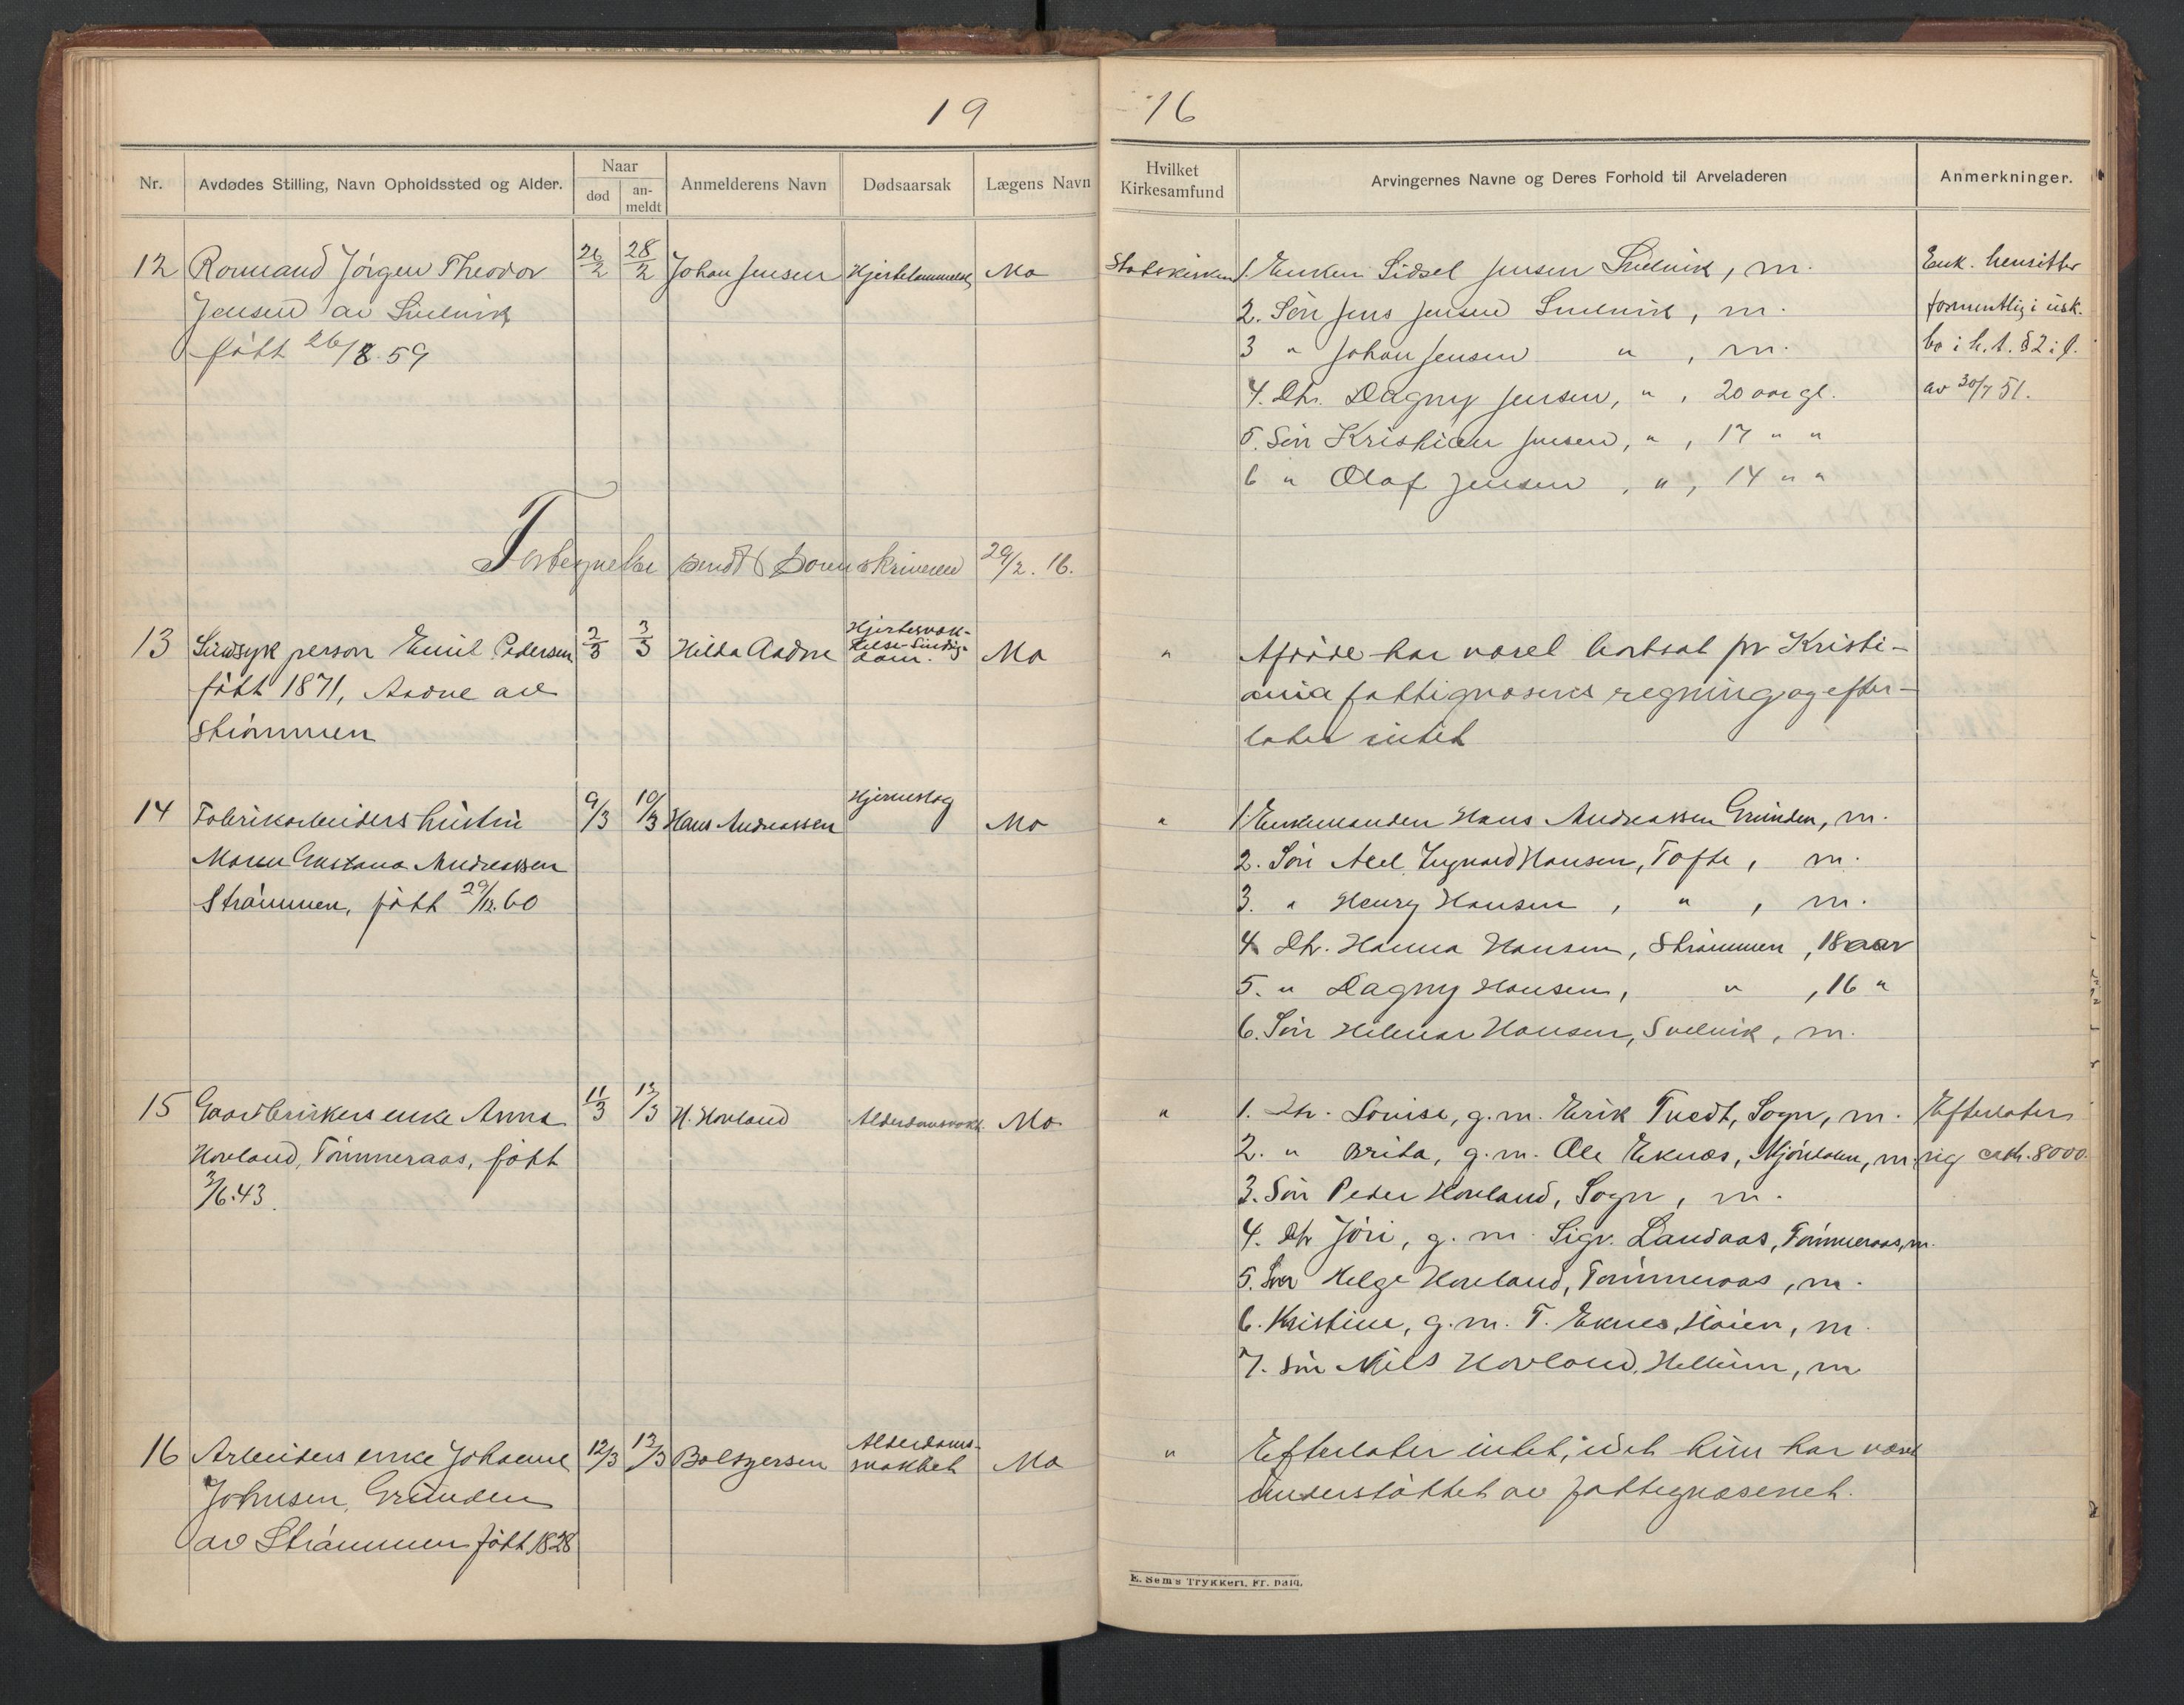 19
16
Nr.
Avdødes Stilling, Navn Opholdssted og Alder.
Naar
død
an-
meldt
Anmelderens Navn
Dødsaarsak
Lægens Navn
Hvilket
Kirkesamfund
Arvingernes Navne og Deres Forhold til Arveladeren
Anmerkninger.
12 Romand Jörgen Theodor 26/2 28/2 Johan Jensen Hjertelammelse Mo
Jensen av Svelvik
født 26/8.59
Statskirken
1. Enken Sidsel Jensen Svelvik, m.
2. Sön Jens Jensen Svelvik, m.
3 " Johan Jensen " , m.
4. Dtr. Dagny Jensen, " , 20 aar gl.
5. Sön Kristian Jensen, " , 17 " "
6 " Olaf Jensen , " , 14 " "
Enk. hensitter
formentlig i usk.
bo i h. t. § 2 i l.
av 30/7 51.
Fortegnelse sendt Sorenskriveren 29/2. 16.
13 Sindsyk person Emil Pedersen 2/3 3/3 Hilda Aadne Hjertesvak- Mo
kelse-Sindig-
dom.
født 1871, Aadne av
Strömmen
" Afdøde har været bortsat pr Kristi-
ania fattigvæsens regning og efter-
later intet
14 Fabrikarbeiders hustru 9/3 10/3 Hans Andreassen Hjerneslag Mo
Maren Gustava Andreassen
Strömmen, født 29/12.60
" 1. Enkemanden Hans Andreassen Grunden, m.
2. Sön Axel Hansen, Tofte, m.
3. " Henry Hansen , " , m.
4 Dtr. Hanna Hansen, Strömmen, 18 aar
5. " Dagny Hansen, " , 16 "
6. Sön Hilmar Hansen, Svelvik, m.
15 Gaardbrukers enke Anna 11/3 13/3 H. Hovland Alderdomsvakh. Mo
Hovland, Tömmeraas, født
3/6.43.
" 1. Dtr. Louise, g. m. Erik Tvedt, Sogn, m.
2. " Brita, g. m. Ole Eknæs, Mjöndalen, m.
3. Sön Peder Hovland, Sogn, m.
4. Dtr Jöri, g. m. Sigv. Landaas, Tömmeraas, m.
5. Sön Helge Hovland, Tömmeraas, m.
6. Kristine, g. m. T. Eknes, Höien, m.
7. Sön Nils Hovland, Hellum, m
Efterlater
sig ca kr. 8000.
16 Arbeiders enke Johanne 12/3 13/3 Balsgersen Alderdoms- Mo
svakhet
Johnsen, Grunden
av Strömmen født 1828
" Efterlater intet, idet hun har været
understöttet av fattigvæsenet.
E. Sem's Trykkeri, Fr. hald.